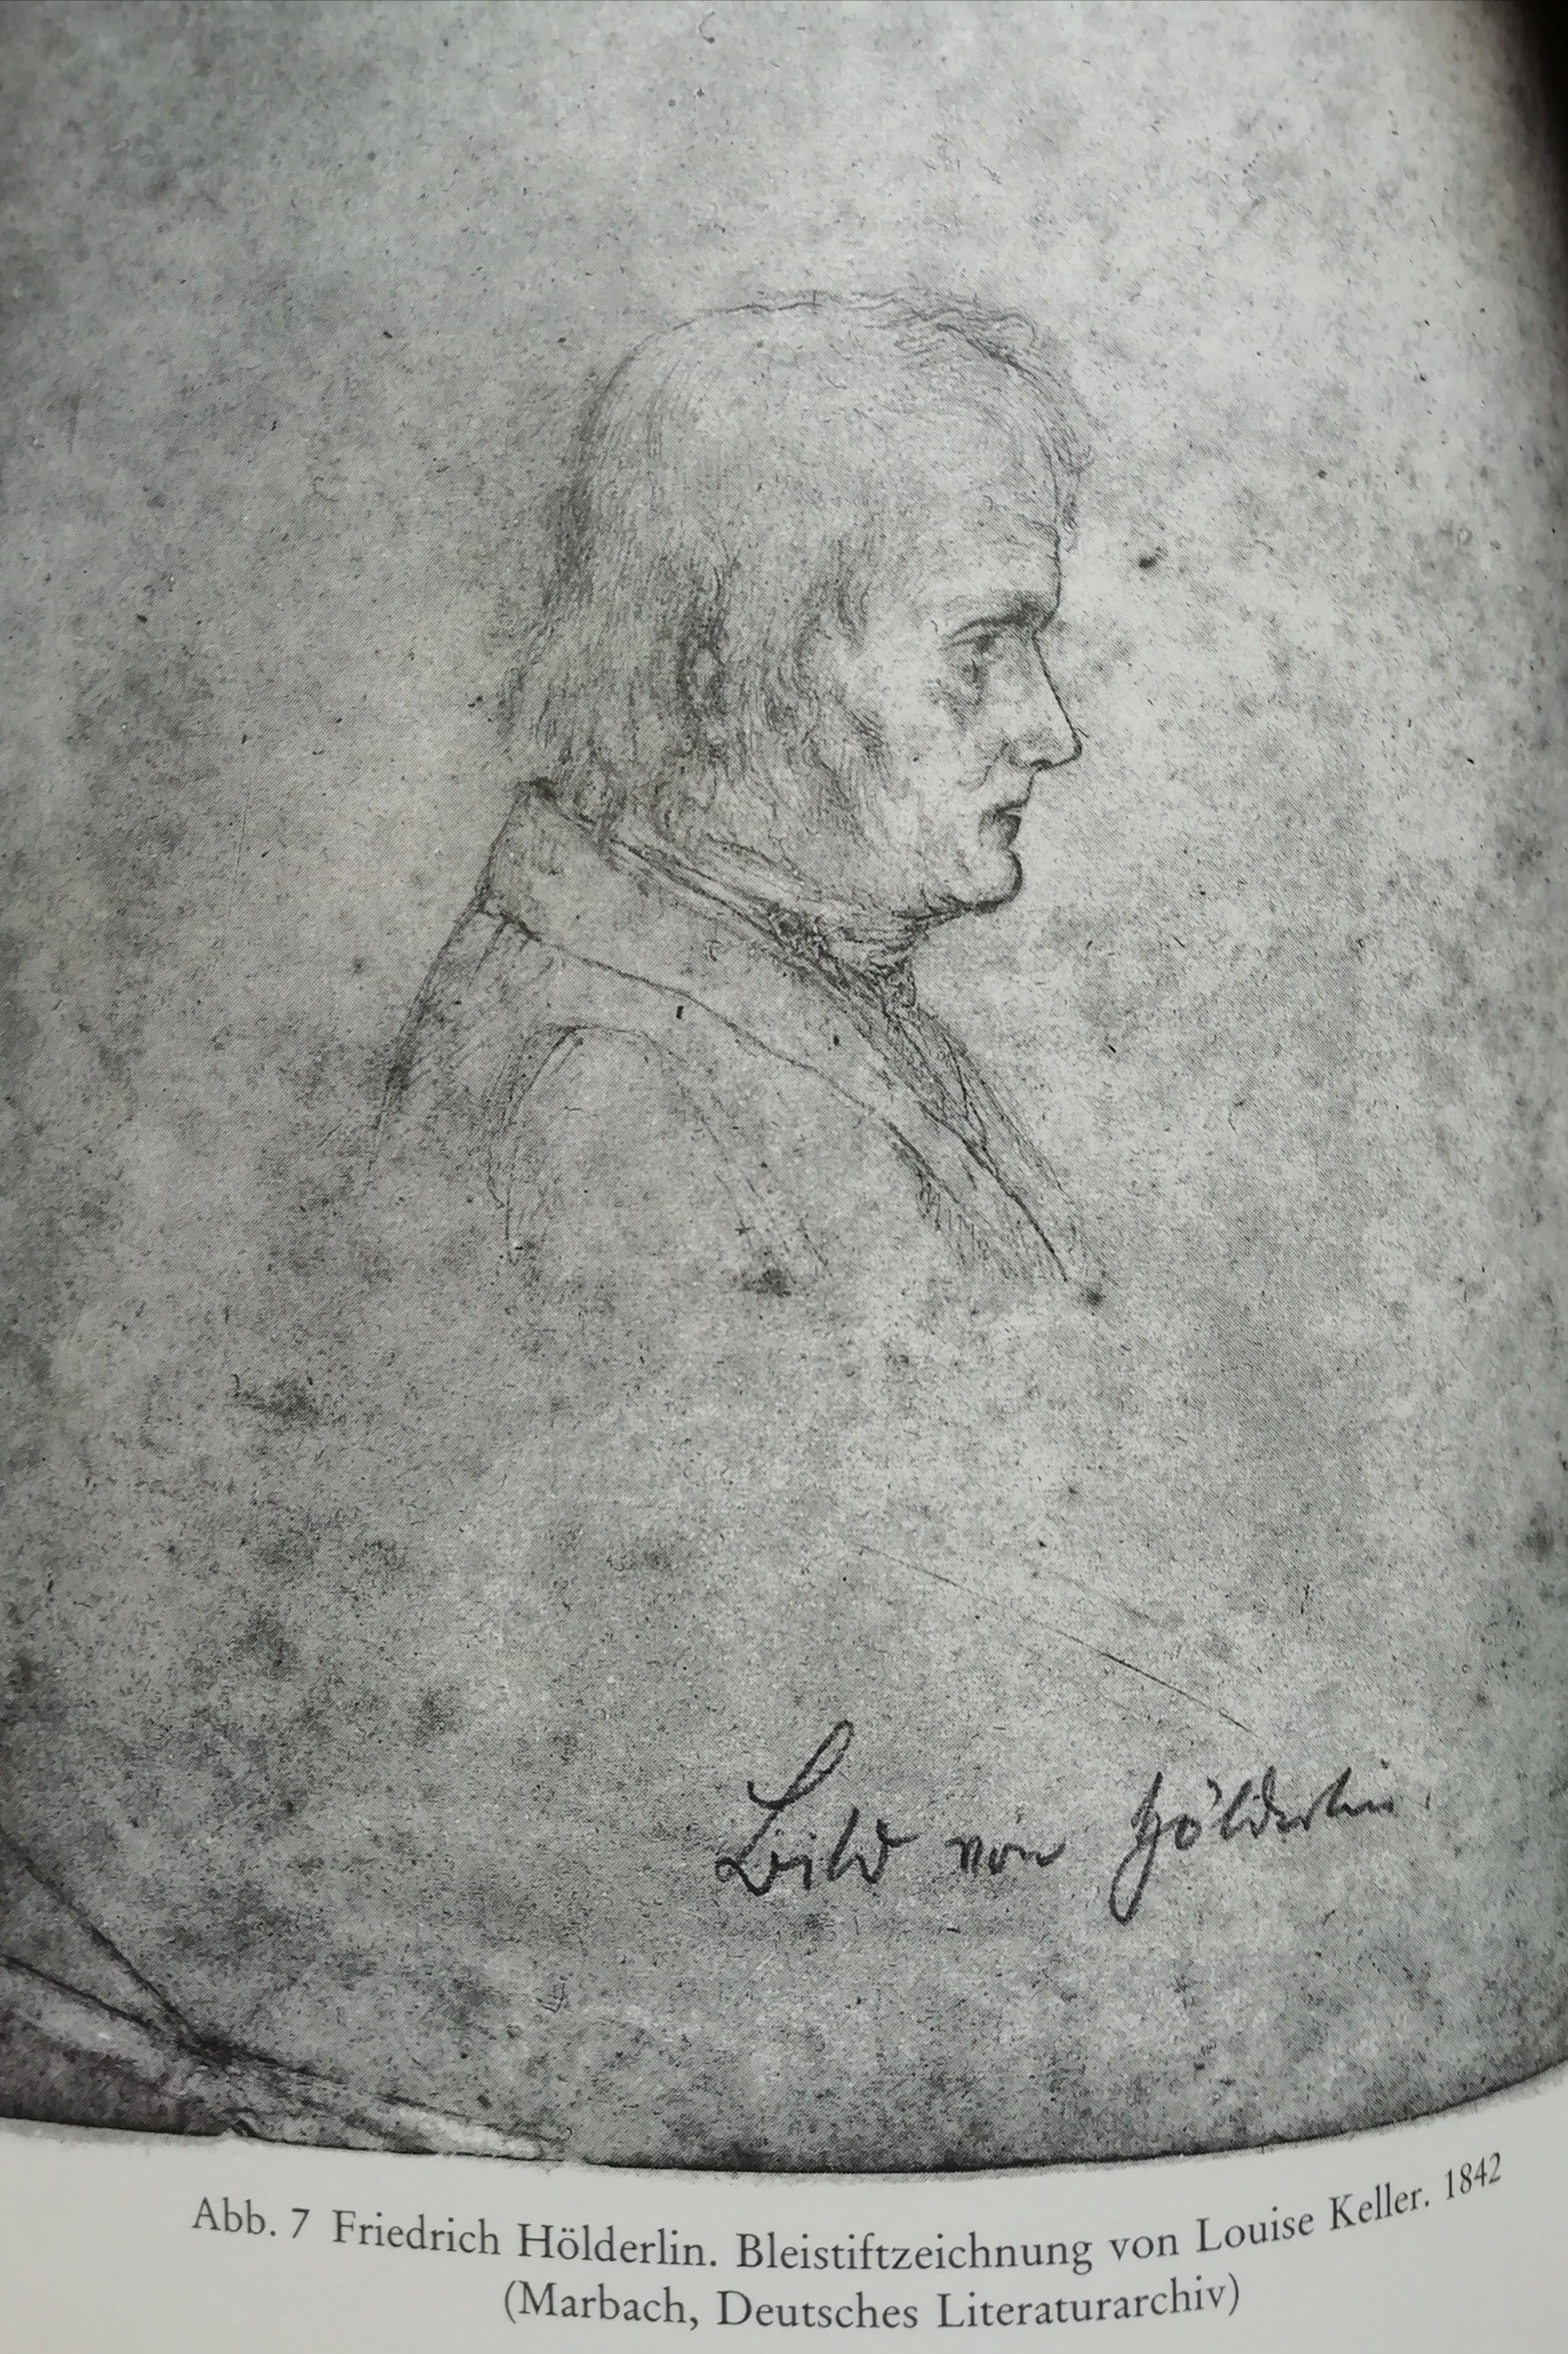 Bild von Hölderlin.
Abb. 7 Friedrich Hölderlin. Bleistiftzeichnung von Louise Keller. 1842
(Marbach, Deutsches Literaturarchiv)